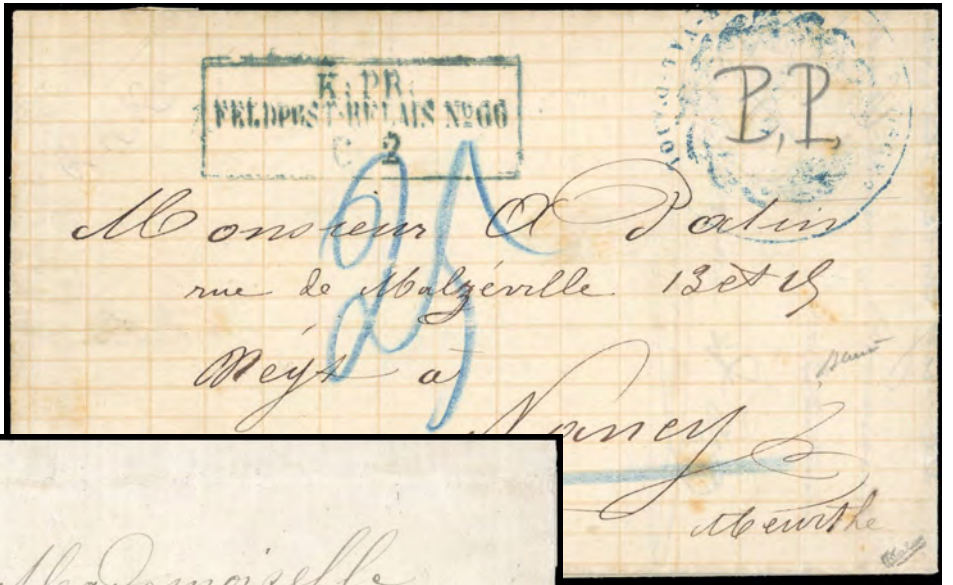 K. PR.
FELDPOST-RELAIS Nº 66
C 2
P.P.
25
Monsieur A Patin
rue de Malzéville 13 et 15
à
Nancy
Meurthe
Mademoiselle